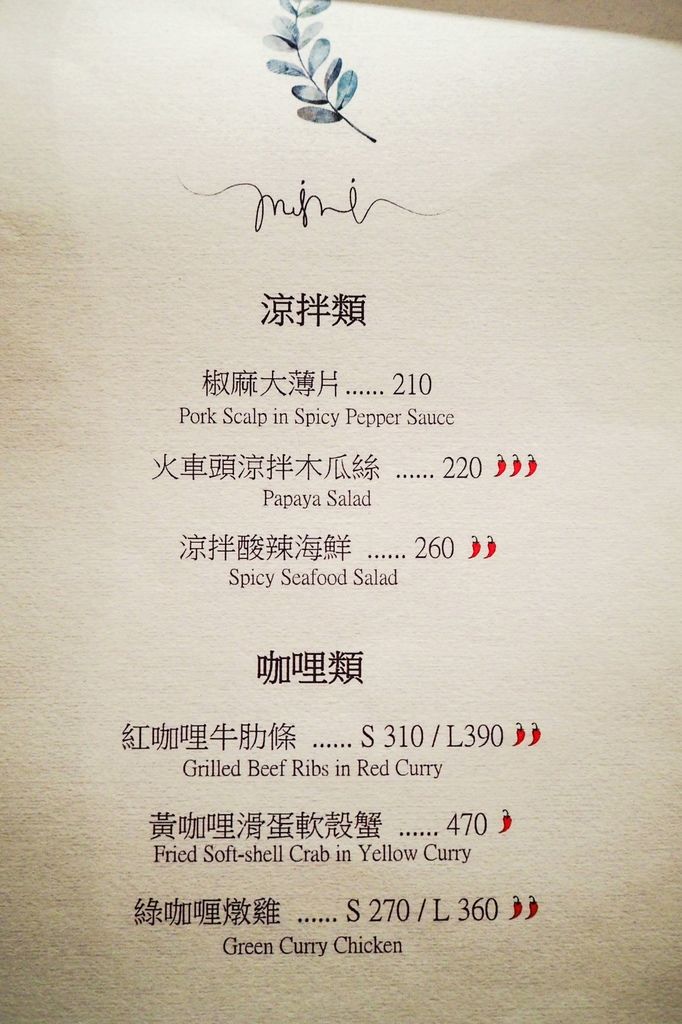 涼拌類
椒麻大薄片...... 210
Pork Scalp in Spicy Pepper Sauce
火車頭涼拌木瓜絲 ...... 220
Papaya Salad
涼拌酸辣海鮮 ...... 260
Spicy Seafood Salad
咖哩類
紅咖哩牛肋條 ...... S 310 / L390
Grilled Beef Ribs in Red Curry
黃咖哩滑蛋軟殼蟹 ...... 470
Fried Soft-shell Crab in Yellow Curry
綠咖喱燉雞 ...... S 270 / L 360
Green Curry Chicken